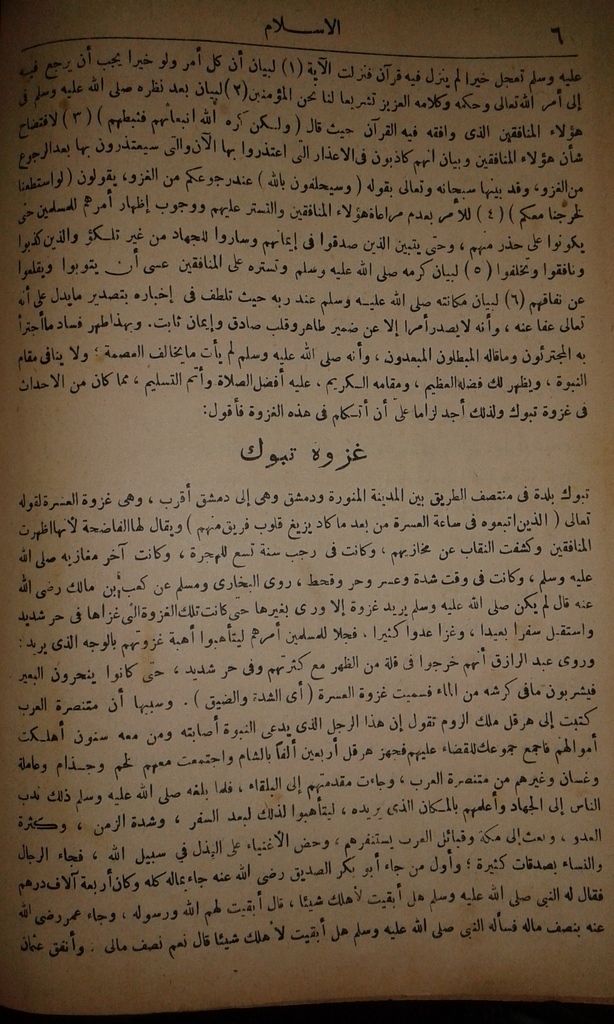 ٦
الاسلام
عليه وسلم تعجل خيرا لم ينزل فيه قرآن فنزلت الآية (١) لبيان أن كل أمر ولو خيرا يجب أن يرجع فيه
إلى أمر الله تعالى وحكمه وكلامه العزيز تشريعا لنا نحن المؤمنين (٢) لبيان بعد نظره صلى الله عليه وسلم فى
هؤلاء المنافقين الذى وافقه فيه القرآن حيث قال (ولكن كره الله انبعاثهم فثبطهم) (٣) لافتضاح
شأن هؤلاء المنافقين وبيان انهم كاذبون فى الاعذار التى اعتذروا بها الآن والتى سيعتذرون بها بعد الرجوع
من الغزو، وقد بينها سبحانه وتعالى بقوله (وسيحلفون بالله) عند رجوعكم من الغزو، يقولون (لو استطعنا
لخرجنا معكم) (٤) للأمر بعدم مراعاة هؤلاء المنافقين والتستر عليهم ووجوب إظهار أمرهم للمسلمين حتى
يكونوا على حذر منهم، وحتى يتبين الذين صدقوا فى إيمانهم وساروا للجهاد من غير تلكؤ والذين كذبوا
ونافقوا وتخلفوا (٥) لبيان كرمه صلى الله عليه وسلم وتستره على المنافقين عسى أن يتوبوا ويقلعوا
عن نفاقهم (٦) لبيان مكانته صلى الله عليه وسلم عند ربه حيث تلطف فى إخباره بتصدير مايدل على أنه
تعالى عفا عنه، وأنه لا يصدر أمرا إلا عن ضمير طاهر وقلب صادق وإيمان ثابت. وبهذا ظهر فساد ما اجترأ
به المجترئون وماقاله المبطلون المبعدون، وأنه صلى الله عليه وسلم لم يأت مايخالف العصمة؛ ولا ينافى مقام
النبوة، ويظهر لك فضله العظيم، ومقامه الكريم، عليه أفضل الصلاة وأتم التسليم، مما كان من الاحداث
فى غزوة تبوك ولذلك أجد لزاما على أن أتكلم فى هذه الغزوة فأقول:
غزوة تبوك
تبوك بلدة فى منتصف الطريق بين المدينة المنورة ودمشق وهى إلى دمشق أقرب، وهى غزوة العسرة لقوله
تعالى (الذين اتبعوه فى ساعة العسرة من بعد ما كاد يزيغ قلوب فريق منهم) ويقال لها الفاضحة لأنها اظهرت
المنافقين وكشفت النقاب عن مخازيهم، وكانت فى رجب سنة تسع للهجرة، وكانت آخر مغازيه صلى الله
عليه وسلم، وكانت فى وقت شدة وعسر وحر وقحط، روى البخارى ومسلم عن كعب بن مالك رضى الله
عنه قال لم يكن صلى الله عليه وسلم يريد غزوة إلا ورى بغيرها حتى كانت تلك الغزوة التى غزاها فى حر شديد
واستقبل سفرا بعيدا، وغزا عدوا كثيرا. فجلا للمسلمين أمرهم ليتأهبوا أهبة غزوتهم بالوجه الذى يريد:
وروى عبد الرازق أنهم خرجوا فى قلة من الظهر مع كثرتهم وفى حر شديد، حتى كانوا ينحرون البعير
فيشربون مافى كرشه من الماء فسميت غزوة العسرة (أى الشدة والضيق). وسببها أن متنصرة العرب
كتبت إلى هرقل ملك الروم تقول إن هذا الرجل الذى يدعى النبوة أصابته ومن معه سنون أهلكت
أموالهم فاجمع جموعك للقضاء عليهم فجهز هرقل أربعين ألفا بالشام واجتمعت معهم لخم وجذام وعاملة
وغسان وغيرهم من متنصرة العرب، وجاءت مقدمتهم إلى البلقاء، فلما بلغه صلى الله عليه وسلم ذلك ندب
الناس إلى الجهاد وأعلمهم بالمكان الذى يريده، ليتأهبوا لذلك لبعد السفر، وشدة الزمن، وكثرة
العدو، وبعث إلى مكة وقبائل العرب يستنفرهم، وحض الأغنياء على البذل فى سبيل الله، فجاء الرجال
والنساء بصدقات كثيرة؛ وأول من جاء أبو بكر الصديق رضى الله عنه جاء بماله كله وكان أربعة آلاف درهم
فقال له النبى صلى الله عليه وسلم هل أبقيت لأهلك شيئا، قال أبقيت لهم الله ورسوله، وجاء عمر رضى الله
عنه بنصف ماله فسأله النبى صلى الله عليه وسلم هل أبقيت لأهلك شيئا قال نعم نصف مالى. وأنفق عثمان